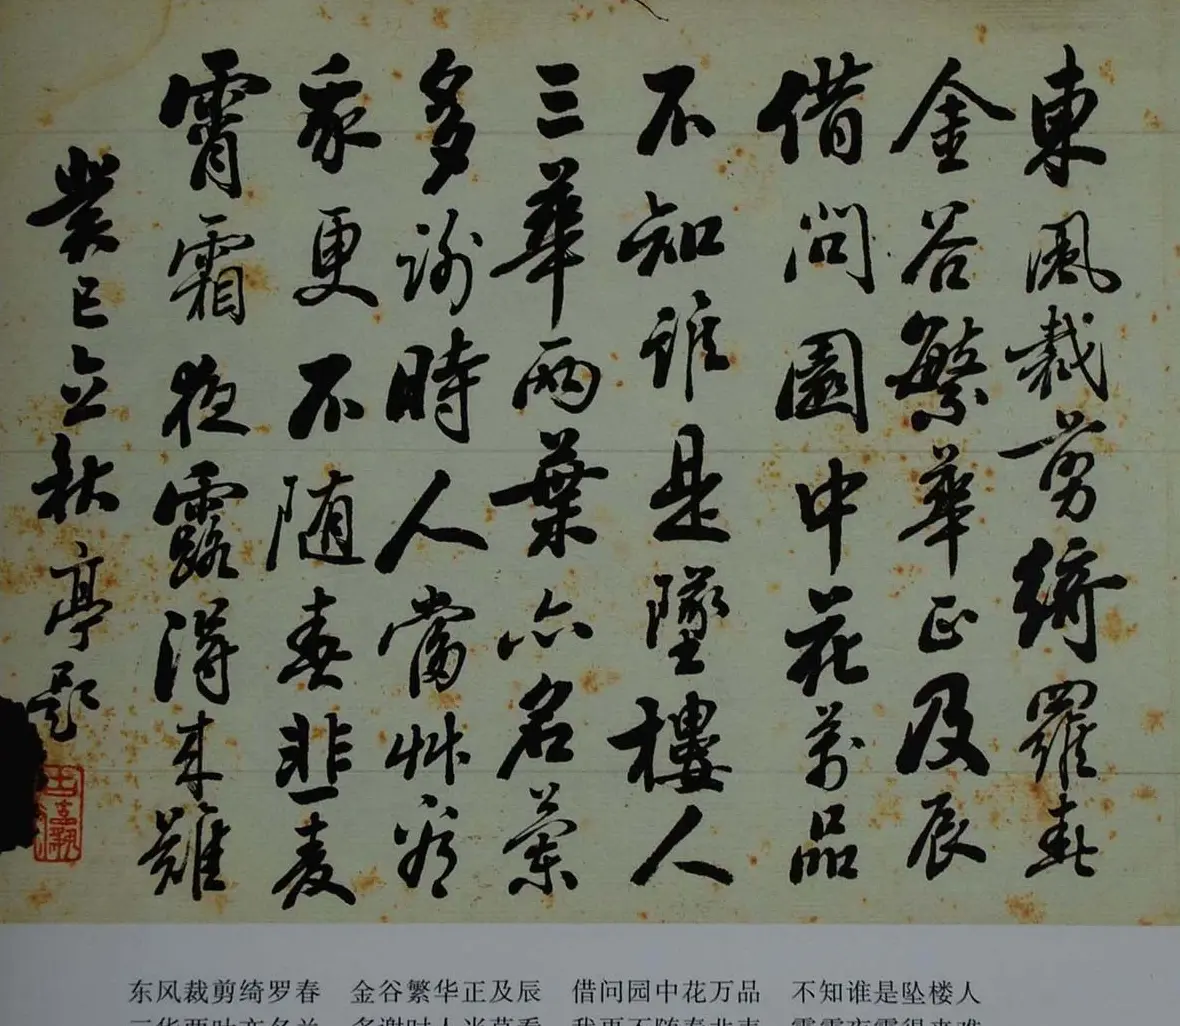 東風裁剪綺羅春
金谷繁華正及辰
借問園中花萬品
不知誰是墜樓人
三華兩葉亦名蘭
多謝時人當艸看
我更不随春韭麦
霄霜夜露得来難
癸巳立秋亭題
东风裁剪绮罗春 金谷繁华正及辰 借问园中花万品 不知谁是坠楼人